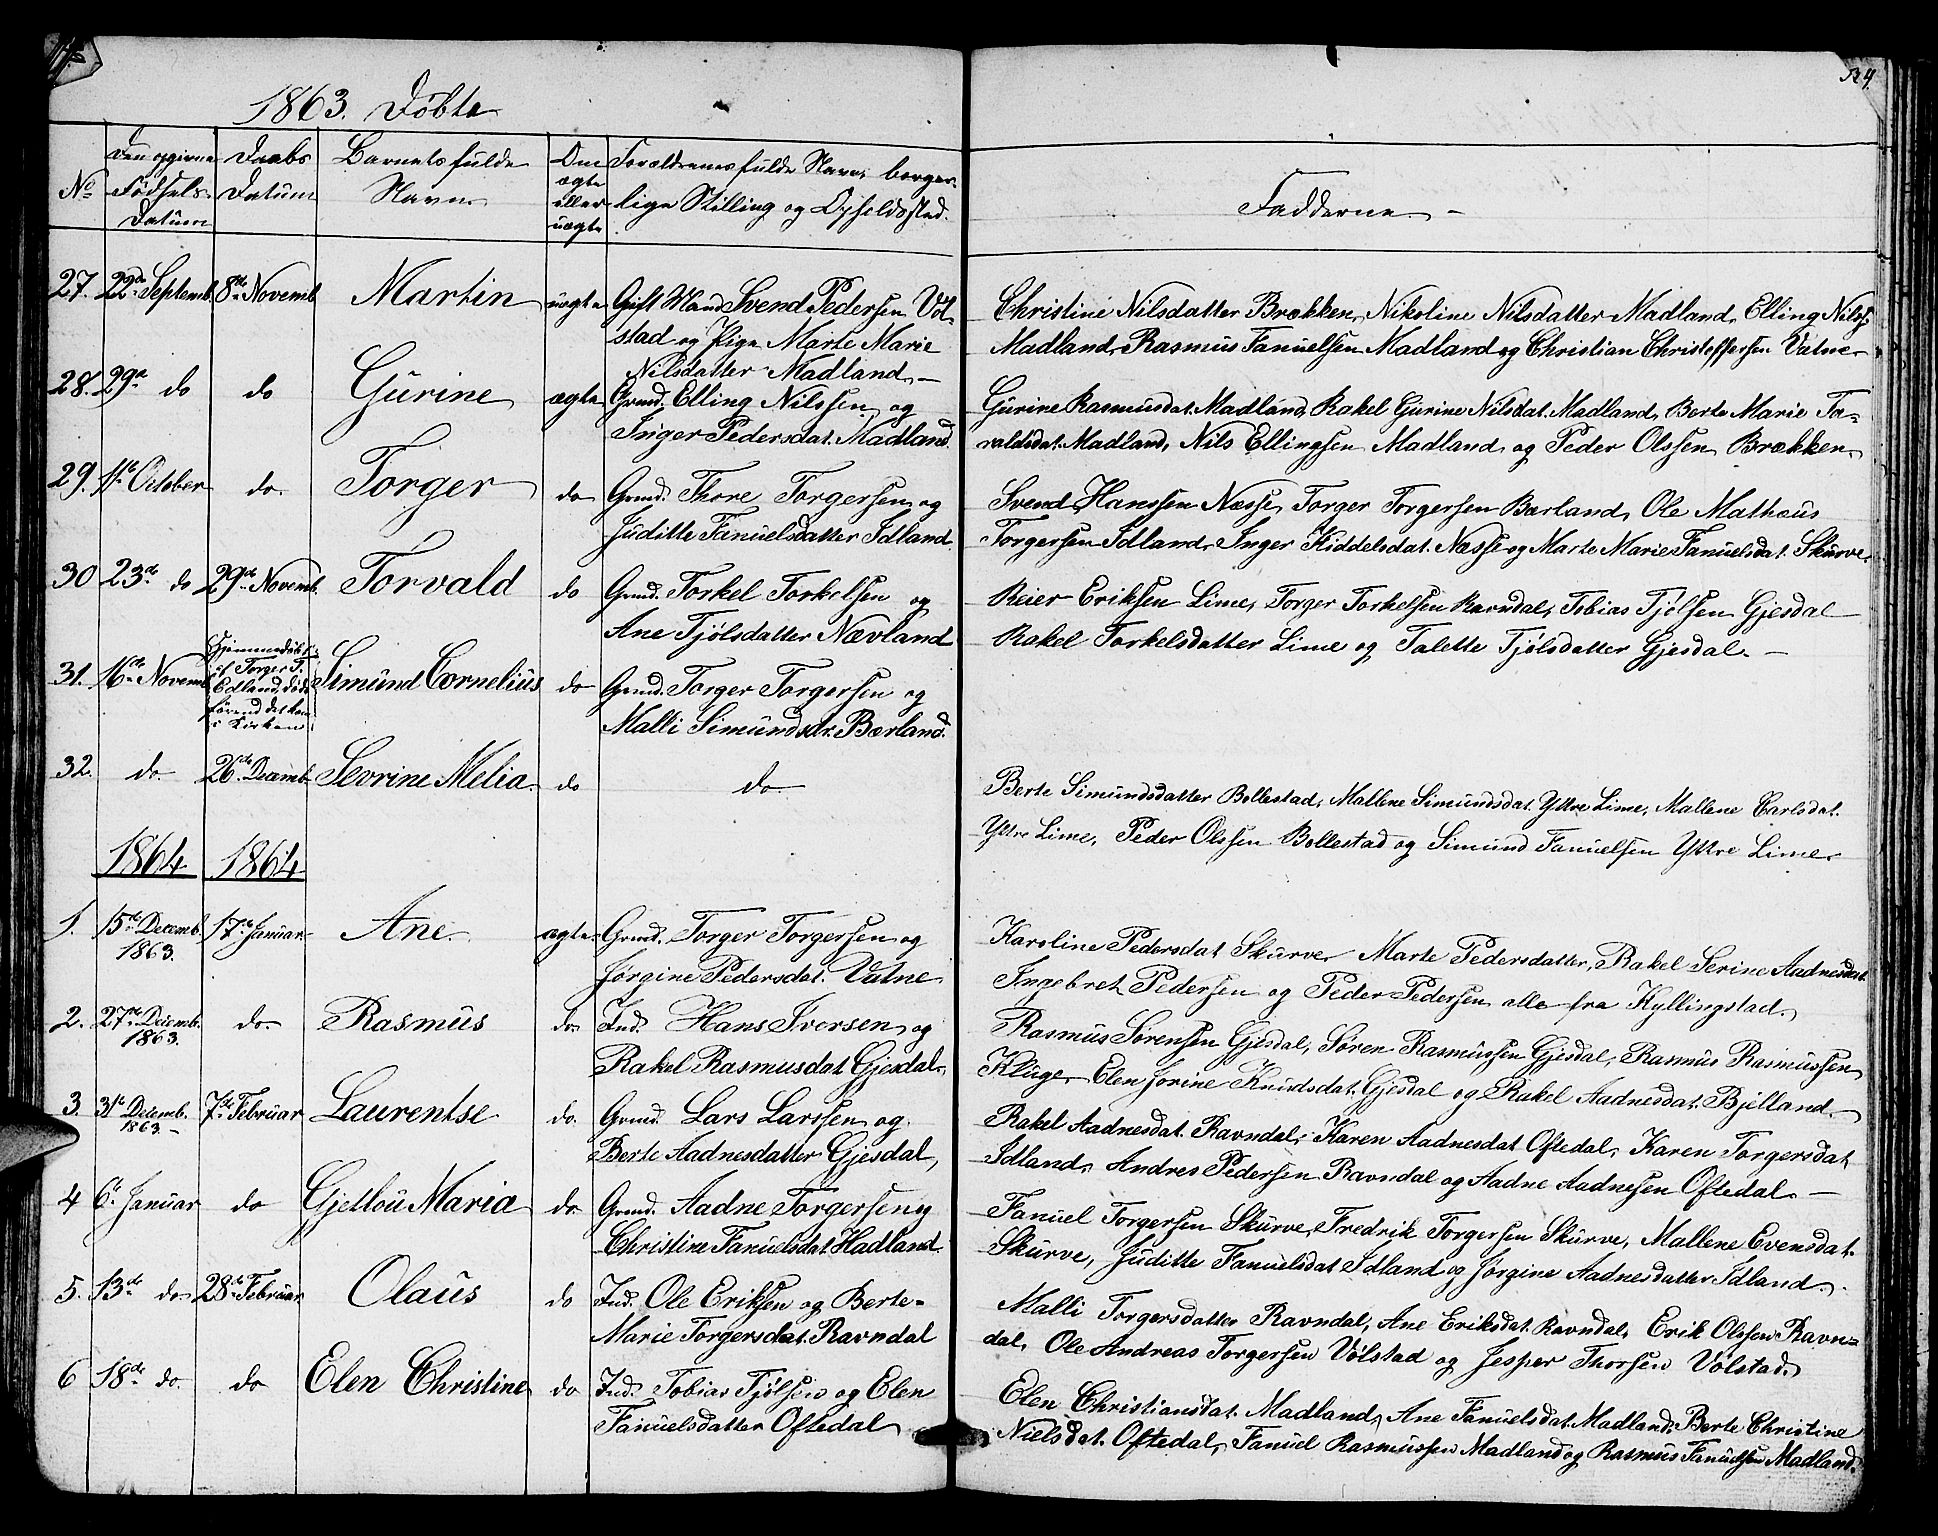 1863. Døbte
No
Den opgivne Fødsels-Datum
Daabs Datum
Barnets fulde Navn
Om ægte eller uægte
Forældrenes fulde Navn, borgerlige Stilling og Opholdssted.
Fadderne
27. 22de Septemb. 8de Novemb. Martin uægte Gift Mand Svend Pedersen Vol-
stad og Pige Marte Marie
Nilsdatter Madland
Christine Nilsdatter Brækken, Nikoline Nilsdatter Madland, Elling Nilss.
Madland, Rasmus Fanuelsen Madland og Christian Christoffersen Vatne
28. 29de do do Gurine ægte Grmd. Elling Nilssen og
Inger Pedersdat. Madland
Gurine Rasmusdat. Madland, Rakel Gurine Nilsdat. Madland, Berte Marie To-
valdsdat. Madland, Nils Ellingsen Madland og Peder Olssen Brækken
29. 1ste October do. Torger do Grmd. Thore Torgersen og
Juditte Fanuelsdatter Idland
Svend Hanssen Næsse, Torger Torgersen Bærland, Ole Mathæus
Torgersen Idland, Inger Kiddelsdat. Næsse og Marte Marie Fanuelsdat. Skurve
30 23de do 29de Novemb. Torvald do Grmd. Torkel Torkelsen og
Ane Tjølsdatter Nævland
Reier Eriksen Lime, Torger Torkelsen Ravndal, Tobias Tjølsen Gjesdal
Rakel Torkelsdatter Lime og Talette Tjølsdatter Gjesdal.
31. 16de Novemb. Hjemmedøbt
af Torger T.
Edland, døde
førend det kom
i Kirken
Simund Cornelius do Grmd. Torger Torgersen og
Malli Simundsdr. Bærland.
32. do. 26de Decemb. Sevrine Melia do do
Berte Simundsdatter Bollestad, Mallene Simundsdat. Yttre Lime, Mallene Carlsdat.
Yttre Lime, Peder Olssen Bollestad og Simund Fanuelsen Yttre Lime
1864 1864
1. 15de Decemb. 1863. 17de Januar Ane ægte Grmd. Torger Torgersen og
Jørgine Pedersdat. Vatne
Karoline Pedersdat Skurve, Marte Pedersdatter, Rakel Serine Aadnesdat.
Ingebret Pedersen og Peder Pedersen alle fra Kyllingstad.
2. 27de Decemb. 1863. do Rasmus do Ind. Hans Iversen og
Rakel Rasmusdat. Gjesdal
Rasmus Sørensen Gjesdal, Søren Rasmussen Gjesdal, Rasmus Rasmussen
Kluge, Elen Jorine Knudsdat. Gjesdal og Rakel Aadnesdat. Bjelland.
3. 31te Decemb. 1863. 7de Februar Laurentse do. Grmd. Lars Larssen og
Berte Aadnesdatter Gjesdal,
Rakel Aadnesdat. Ravndal, Karen Aadnesdat Oftedal, Karen Torgersdat
Idland, Andres Pedersen Ravndal og Aadne Aadnesen Oftedal
4 6te Januar do Gjetlou Maria do Grmd. Aadne Torgersen og
Christine Fanuelsdat Hadland
Fanuel Torgersen Skurve, Fredrik Torgersen Skurve, Mallene Evensdat.
Skurve, Juditte Fanuelsdat Idland og Jørgine Aadnesdatter Idland.
5. 13de do 28de Februar Olaus do Ind. Ole Eriksen og Berte-
Marie Torgersdat. Ravndal
Malli Torgersdatter Ravndal, Ane Eriksdat. Ravndal, Erik Olssen Ravn-
dal, Ole Andreas Torgersen Volstad og Jesper Thorsen Volstad.
6 18de do. do Elen Christine do Ind. Tobias Tjølsen og Elen
Fanuelsdatter Oftedal
Elen Christiansdat. Madland, Ane Fanuelsdat. Madland, Berte Christine
Nielsdat. Oftedal, Fanuel Rasmussen Madland og Rasmus Fanuelsen Madland.